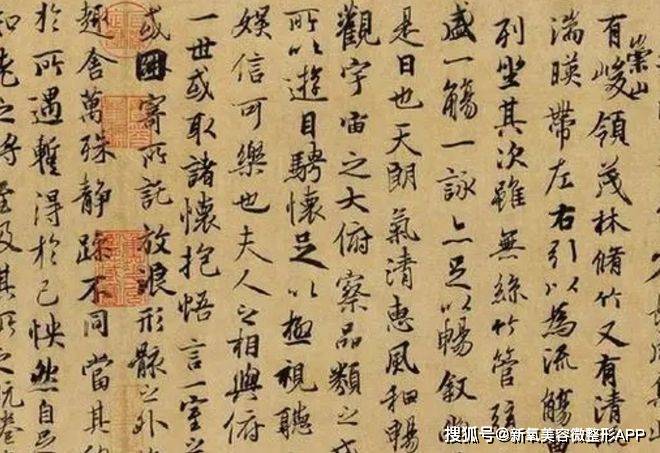 長咸集
崇山
有峻領茂林脩竹又有清
湍暎帶左右引以為流觴
列坐其次雖無絲竹管弦
盛一觴一詠亦足以暢叙
是日也天朗氣清惠風和暢
觀宇宙之大俯察品類之
所以遊目騁懷足以極視聽
娛信可樂也夫人之相與俯
一世或取諸懷抱悟言一室之
或因寄所託放浪形骸之外
趣舍萬殊静躁不同當其
於所遇蹔得於己怏然自足
知老之將至及其所之既惓
搜狐号@新氧美容微整形APP